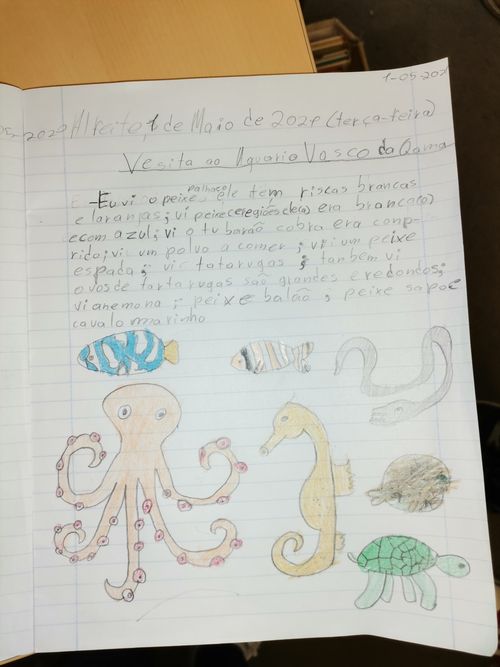 1-05-202
Afreito, 1 de Maio de 2021 (terça-feira)
Vesita ao Aquario Vasco da Gama
-Eu vi o peixe palhaço, ele tém riscas brancas
e laranjas; vi peixe era branco(a)
e com azul; vi o tubarão cobra era conp-
rido; vi um polvo a comer; vi um peixe
espada; vi tatarugas; tanbem vi
ovos de tartarugas são grandes e redondos;
vi anemona; peixe balão; peixe sapo e
cavalo marinho